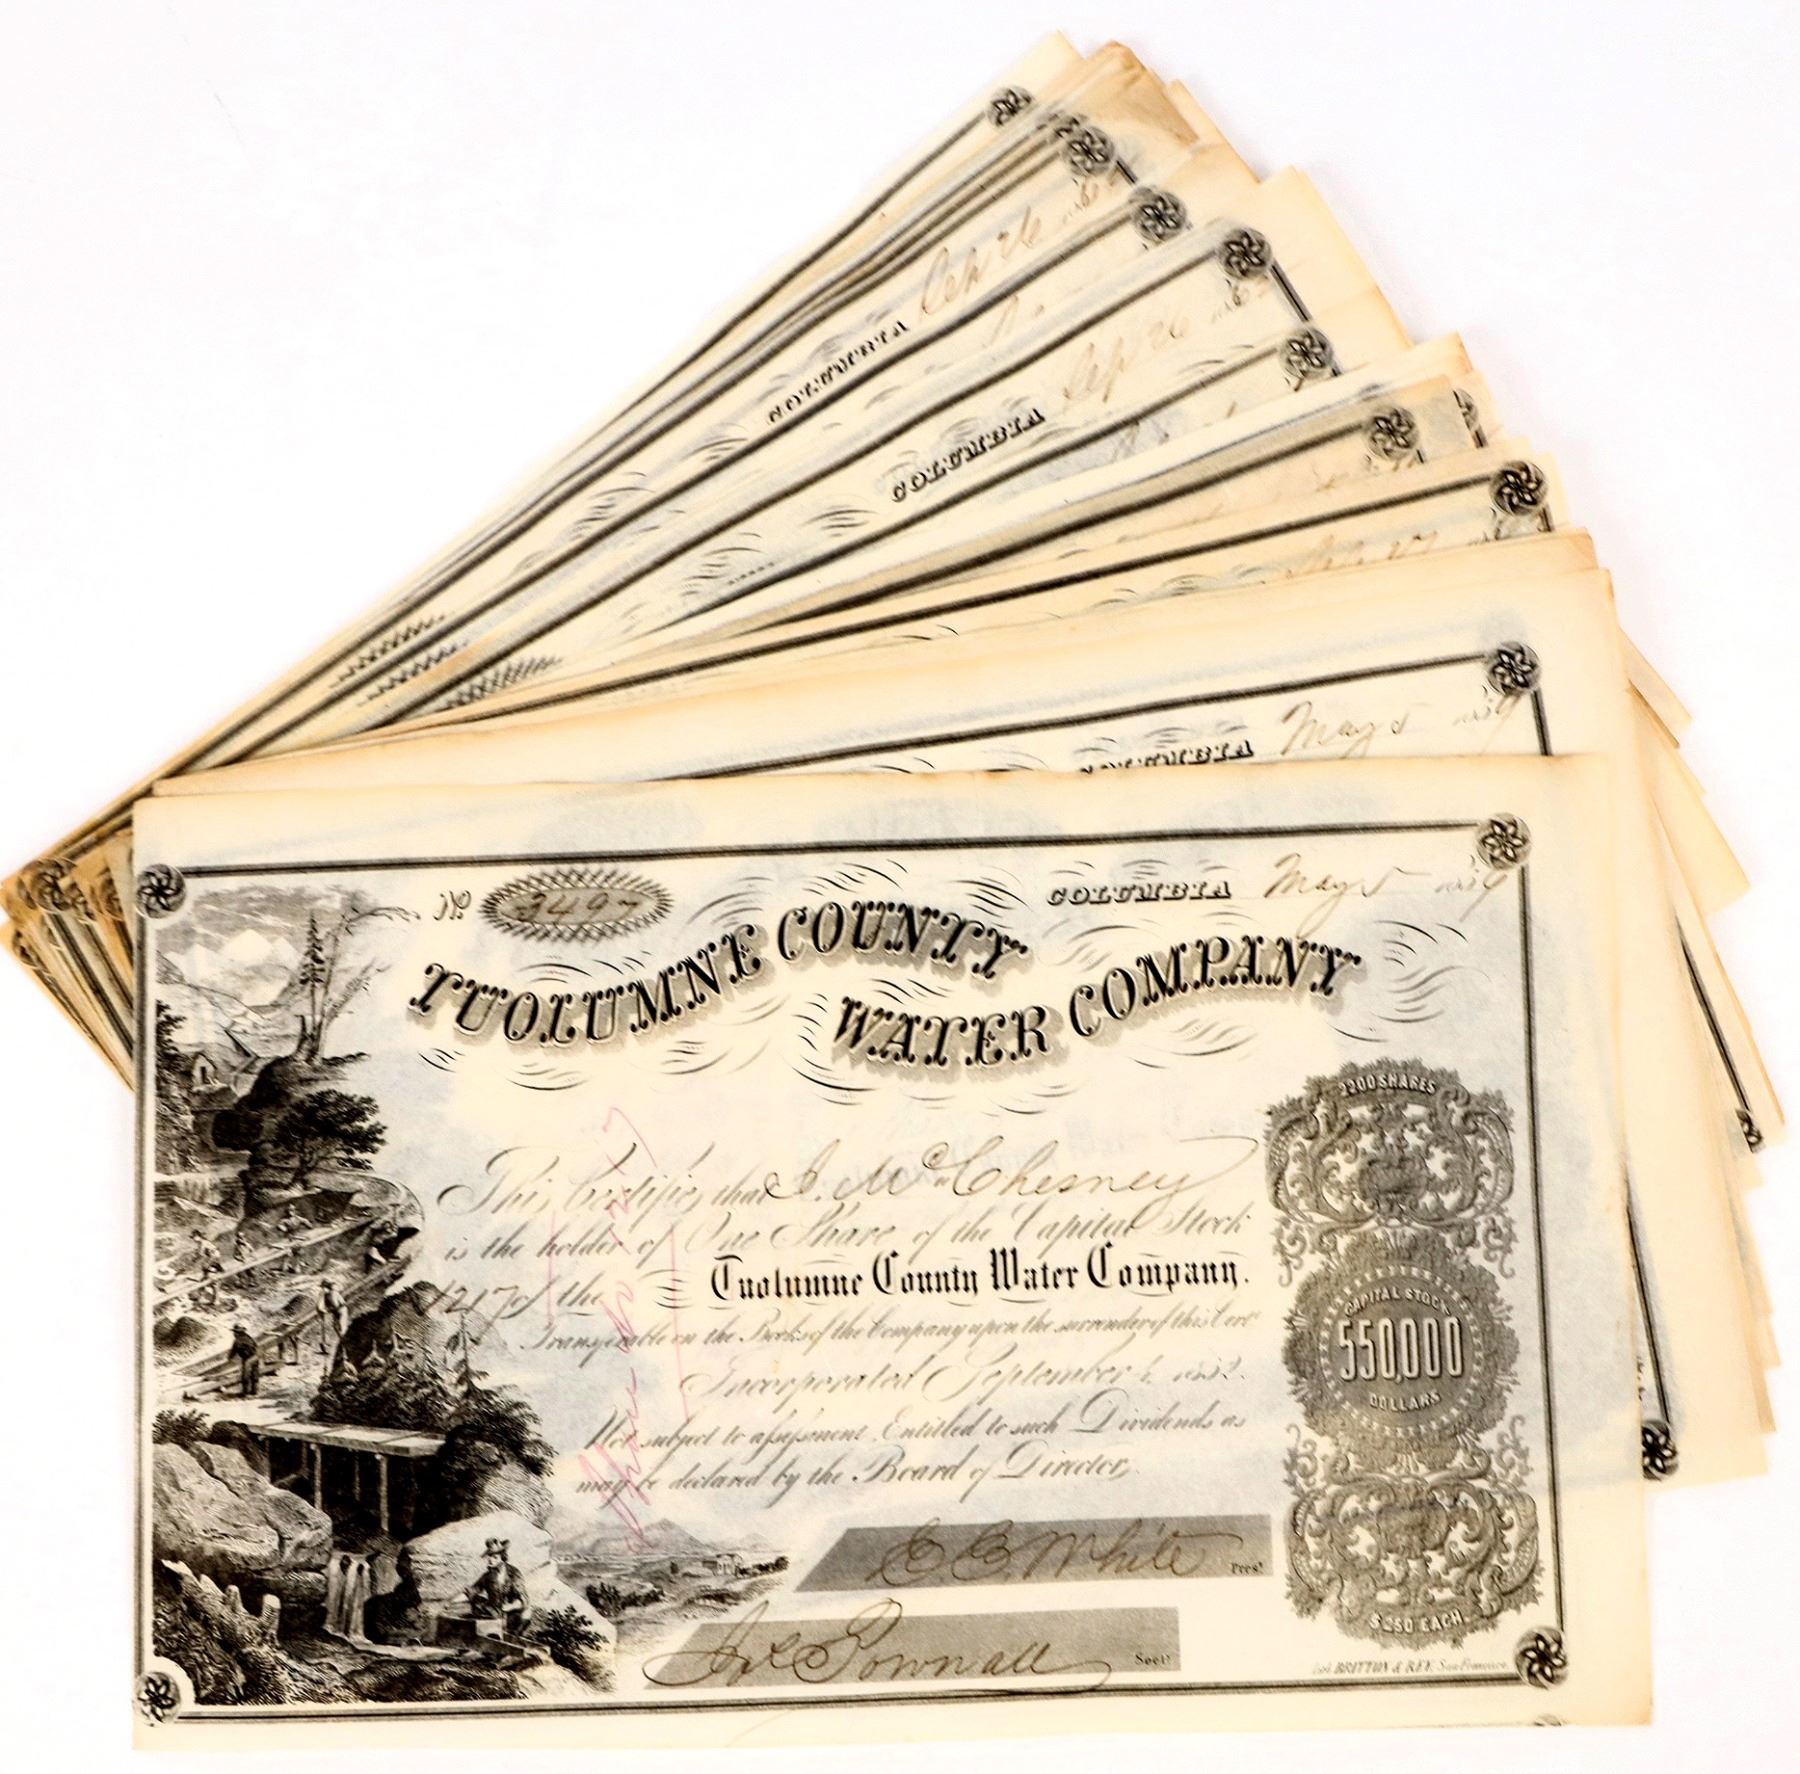 COLUMBIA
COLUMBIA Sep 26
COLUMBIA May 5 1859
No 3497
COLUMBIA May 5 1859
TUOLUMNE COUNTY
WATER COMPANY
This Certifies that J. McChesney
is the holder of One Share of the Capital Stock
1217 of the Tuolumne County Water Company.
Transferable on the Books of the Company upon the surrender of this Cert
Incorporated September 1852.
Not subject to assessment. Entitled to such Dividends as
may be declared by the Board of Directors
E B White Prest
Jos Pownall Secty
2200 SHARES
CAPITAL STOCK
550,000
DOLLARS
$250 EACH
Lith. BRITTON & REY. San Francisco.